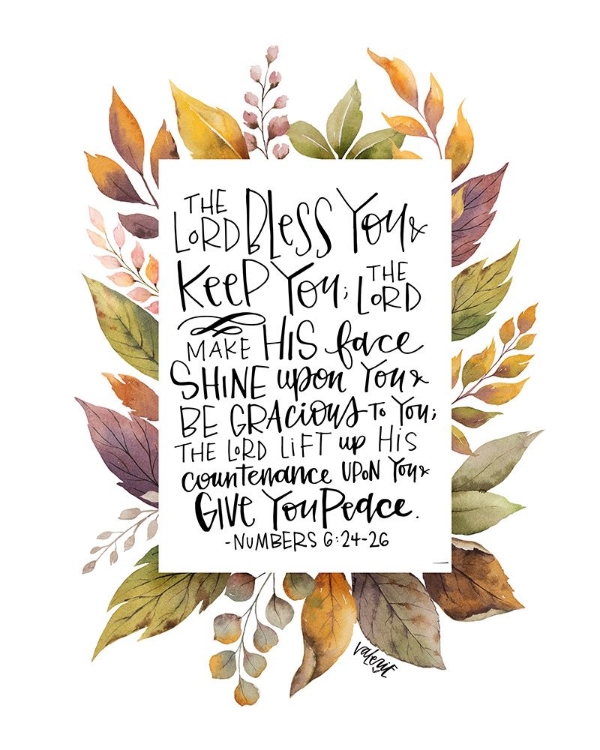 THE
LORD BLESS YOU &
KEEP YOU; THE LORD
MAKE HIS face
SHINE upon YOU &
BE GRACIOUS TO YOU;
THE LORD LIFT up HIS
countenance UPON YOU &
GIVE YOU Peace.
-NUMBERS 6:24-26
Valerie